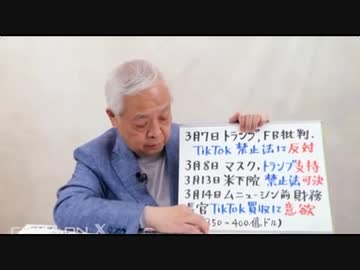 3月7日トランプ,FB批判.
TikTok 禁止法に反対
3月8日 マスク,トランプ支持
3月13日 米下院 禁止法可決
3月14日ムニューシン前財務
長官TikTok買収に意欲
350~400億ドル)